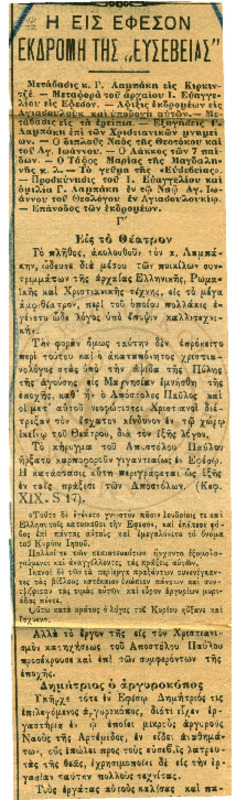 Η ΕΙΣ ΕΦΕΣΟΝ
ΕΚΔΡΟΜΗ ΤΗΣ „ΕΥΣΕΒΕΙΑΣ"
Μετάβασις κ. Γ. Λαμπάκη εἰς Κιρκιν-
τζέ. — Μεταφορὰ τοῦ ἀρχαίου Ι. Εὐαγγε-
λίου εἰς Ἔφεσον. — Ἄφιξις ἐκδρομέων εἰς
Ἀγιασουλοὺκ καὶ ὑποδοχὴ αὐτῶν. — Με-
τάβασις εἰς τὰ ἐρείπια. — Ἐξηγήσεις Γ.
Λαμπάκη ἐπὶ τῶν Χριστιανικῶν μνημεί-
ων. — Ὁ διπλοῦς Ναὸς τῆς Θεοτόκου καὶ
τοῦ Αγ. Ἰωάννου. — Ὁ Λάκκος τῶν 7 παί-
δων. — Ὁ Τάφος Μαρίας τῆς Μαγδαλη-
νῆς κ. λ. — Τὸ γεῦμα τῆς «Εὐσεβείας».
—Προσκύνησις τοῦ Ι. Εὐαγγελίου καὶ
ὁμιλία Γ. Λαμπάκη ἐν τῷ Ναῷ Αγ. Ἰω-
άννου τοῦ Θεολόγου ἐν Ἀγιασουλουκίῳ.
—Ἐπάνοδος τῶν ἐκδρομέων.
Γ′
Εἰς τὸ Θέατρον
Τὸ πλῆθος, ἀκολουθοῦν τὸν κ. Λαμπά-
κην, ὥδευτε διὰ μέσου τῶν ποικίλων συν-
τριμμάτων τῆς ἀρχαίας Ἑλληνικῆς, Ρωμα-
ϊκῆς καὶ Χριστιανικῆς τέχνης, εἰς τὸ μέγα
ἀμφιθέατρον, περὶ τοῦ ὁποίου πολλάκις ἐ-
γένετο ὧδε λόγος ὑπὸ ἔποψιν καλλιτεχνι-
κῆς.
Τὴν φορὰν ὅμως ταύτην δὲν ἐπρόκειτο
περὶ τούτου καὶ ὁ ἀκαταπόνητος χριστια-
νολόγος στὰς ὑπὸ τὴν ἁψῖδα τῆς Πύλης
τῆς ἀγούσης εἰς Μαγνησίαν ἐμνήσθη τῆς
ἐποχῆς, καθ᾽ ἣν ὁ Ἀπόστολος Παῦλος καὶ
οἱ μετ᾽ αὐτοῦ νεοφώτιστοι Χριστιανοὶ διέ-
τρεξαν τὸν ἔσχατον κίνδυνον ἐν τῷ χώρῳ
ἐκείνῳ τοῦ Θεάτρου, διὰ τὸν ἑξῆς λόγον.
Τὸ κήρυγμα τοῦ Ἀποστόλου Παύλου
ἤρξατο καρποφοροῦν γιγαντιαίως ἐν Ἐφέσῳ.
Ἡ κατάστασις αὕτη περιγράφεται ὡς ἑξῆς
ἐν ταῖς πράξεσι τῶν Ἀποστόλων. (Κεφ.
XIX. S 17).
«Τοῦτο δὲ ἐγένετο γνωστὸν πᾶσιν Ἰουδαίοις τε καὶ
Ἕλλησι τοῖς κατοικοῦσι τὴν Ἔφεσον, καὶ ἐπέπεσε φό-
βος ἐπὶ πάντας αὐτοὺς καὶ ἐμεγαλύνετο τὸ ὄνομα
τοῦ Κυρίου Ἰησοῦ.
Πολλοί τε τῶν πεπιστευκότων ἤρχοντο ἐξομολο-
γούμενοι καὶ ἀναγγέλλοντες τὰς πράξεις αὐτῶν.
Ἱκανοὶ δὲ τῶν τὰ περίεργα πραξάντων συνενέγκαν-
τες τὰς βίβλους κατέκαιον ἐνώπιον πάντων καὶ συν-
εψήφισαν τὰς τιμὰς αὐτῶν καὶ εὗρον ἀργυρίου μυριά-
δας πέντε.
Οὕτω κατὰ κράτος ὁ λόγος τοῦ Κυρίου ηὔξανε καὶ
ἴσχυεν».
Ἀλλὰ τὸ ἔργον τῆς εἰς τὸν Χριστιανι-
σμὸν κατηχήσεως τοῦ Ἀποστόλου Παύλου
προσέκρουσε καὶ ἐπὶ τῶν συμφερόντων τῆς
ἐποχῆς.
Δημήτριος ὁ ἀργυροκόπος
Ὑπῆρχε τότε ἐν Ἐφέσῳ Δημήτριός τις
ἐπιλεγόμενος ἀργυροκόπος, διότι εἶχεν ἐρ-
γαστήρια ἐν ᾧ ἐποίει μικροὺς ἀργυροῦς
Ναοὺς τῆς Ἀρτέμιδος, ἐν εἴδει ἀναθημά-
των, οὓς ἐπώλει πρὸς τοὺς εὐσεβεῖς λατρευ-
τὰς τῆς θεᾶς, ἐχρησιμοποίει δὲ εἰς τὴν ἐρ-
γασίαν ταύτην πολλοὺς τεχνίτας.
Τοὺς ἐργάτας αὐτοὺς καλέσας καὶ πα-